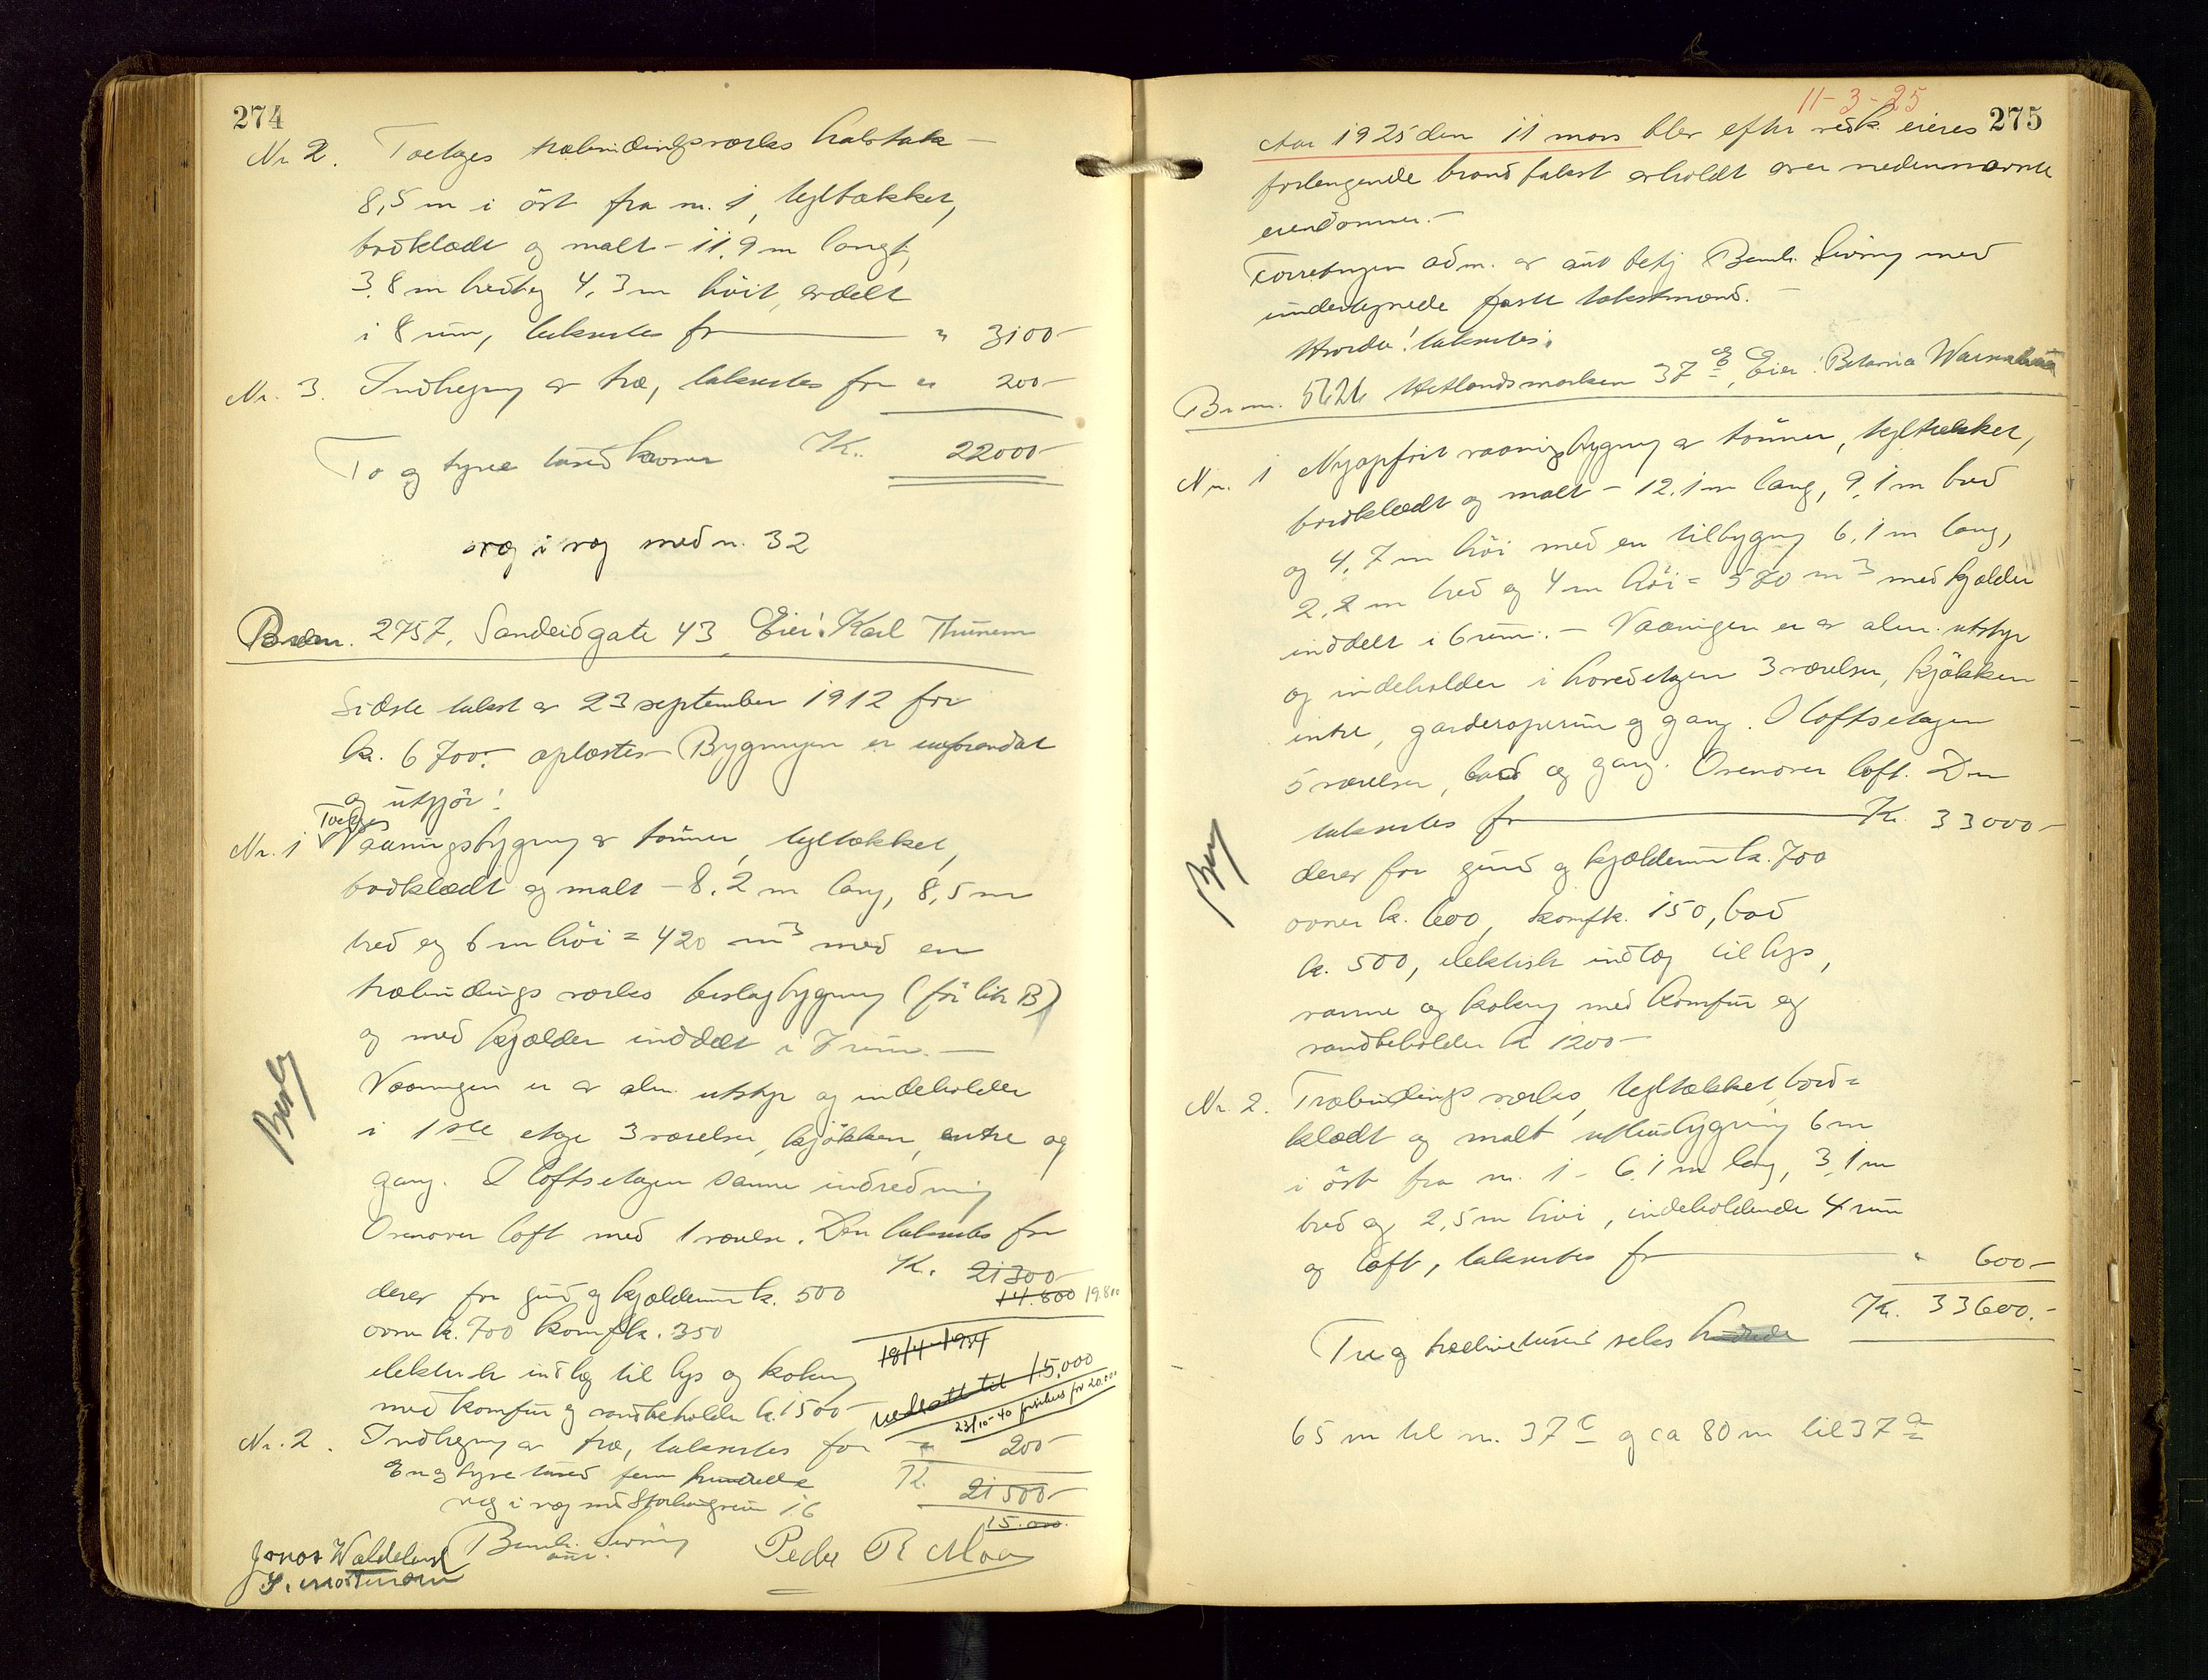 274
Nr 2. Toetages træbindingsverks halvtak -
8,5 m i öst fra nr. 1, tegltækket,
bordklædt og malt - 11,9 m langt,
3,8 m bredt og 4,3 m höit, avdelt
i 8 rum, takseres for " 3100-
Nr. 3. Indhegning av træ, takseres for " 200-
To og tyve tused kroner Kr. 22000-
væg i væg med nr. 32
Br. nr. 2757, Sandeidgate 43, Eier: Karl Thunem
Sidste takst av 23 september 1912 for
kr. 6700.- oplæstes - Bygningen er uforandret
og utgjör:
Toetages
Nr. 1 Vaaningsbygning av tömmer, tegltækket,
bordklædt og malt - 8,2 m lang, 8,5 m
bred og 6 m höi = 420 m3 med en
træbindingsverks beslagbygning (för litr B)
og med kjælder inddelt i 7 rum. -
Vaaningen er av alm. utstyr og indeholder
i 1ste etage 3 værelser, kjökken, entre og
gang. I loftsetagen samme indredning
Ovenover loft med 1 værelse. Den takseres for
Kr. 21300-
14.800 19.800
derav for grund og kjælderrum kr. 500
ovne kr. 700 komf. kr. 350
18/4-1934
elektrisk indlæg til lys og kokning
nedsatt til 15,000
med komfur og vandbeholder kr. 1500-
23/10-40 forsikres for 20.000
Nr. 2. Indhegning av træ, takseres for " 200-
En og tyve tused fem hundrede Kr. 21500-
væg i væg med 16
15.000.
Bernh. Sivring
aut.
Peder R Moa
Jonas Waldeland
S. Mortensen
Berg
11-3-25
275
Aar 1925 den 11 mars blev efter vedk. eieres
forlangende brandtakst avholdt over nedennævnte
eiendommer.-
Forretningen adm. av aut betj Bernh. Sivring med
undertegnede faste takstmænd. -
Hvorda! takseres:
Br. nr. 5626 Hetlandsmarken 37B, Eier: Betania
Nr. 1 Nyopfört vaaningsbygning av tömmer, tegltækket,
bordklædt og malt - 12,1 m lang, 9,1 m bred
og 4,7 m höi med en tilbygning 6,1 m lang,
2,2 m bred og 4 m höi = 580 m3 med kjælder
inddelt i 6 rum. - Vaaningen er av alm. utstyr
og indeholder i hovedetagen 3 værelser, kjökken
entre, garderoperum og gang. I loftsetagen
5 værelser, bad og gang. Ovenover loft. Den
takseres for Kr. 33000-
derav for grund og kjælderrum kr. 700
ovner kr. 600, komf kr. 150, bad
kr. 500, elektrisk indlæg til lys,
varme og kokning med komfur og
vandbeholder kr 1200-
Nr. 2. Træbindingsverks, tegltækket, bord=
klædt og malt uthusbygning 6 m
i öst fra nr. 1 - 6,1 m lang, 3,1 m
bred og 2,5 m höi, indeholdende 4 rum
og loft, takseres for " 600-
Kr. 33600.-
Tre og tredive tused seks hundrede
65 m til nr. 37c og ca 80 m til 37a
Berg